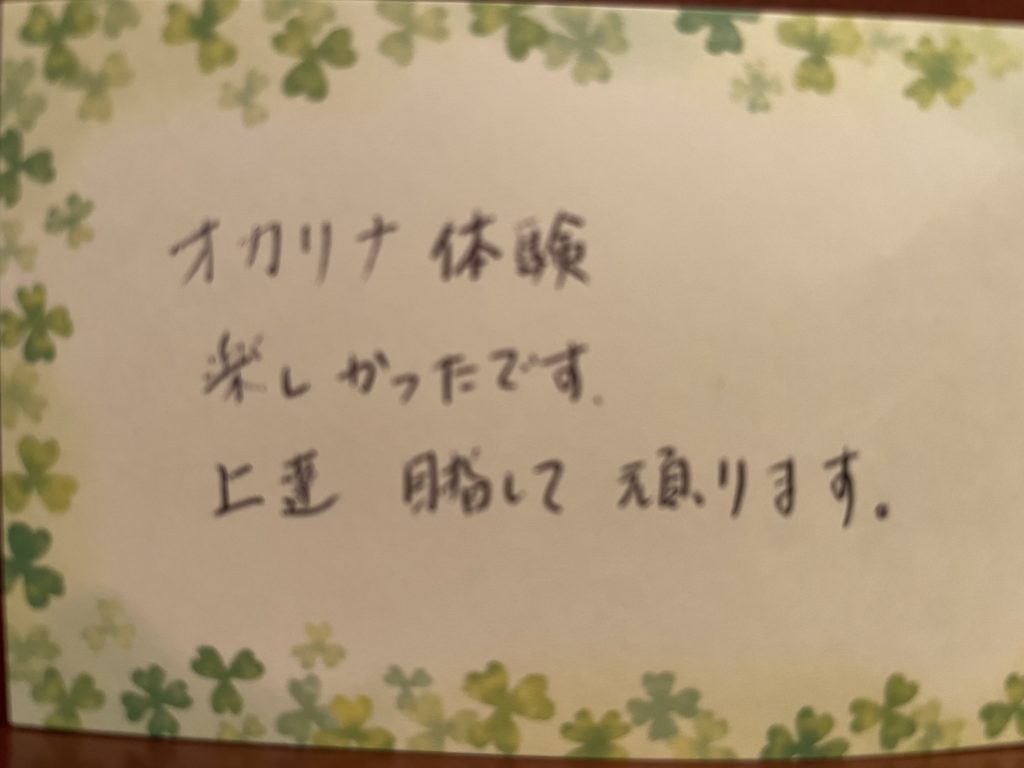 オカリナ体験
楽しかったです.
上達 目指して 頑ります。